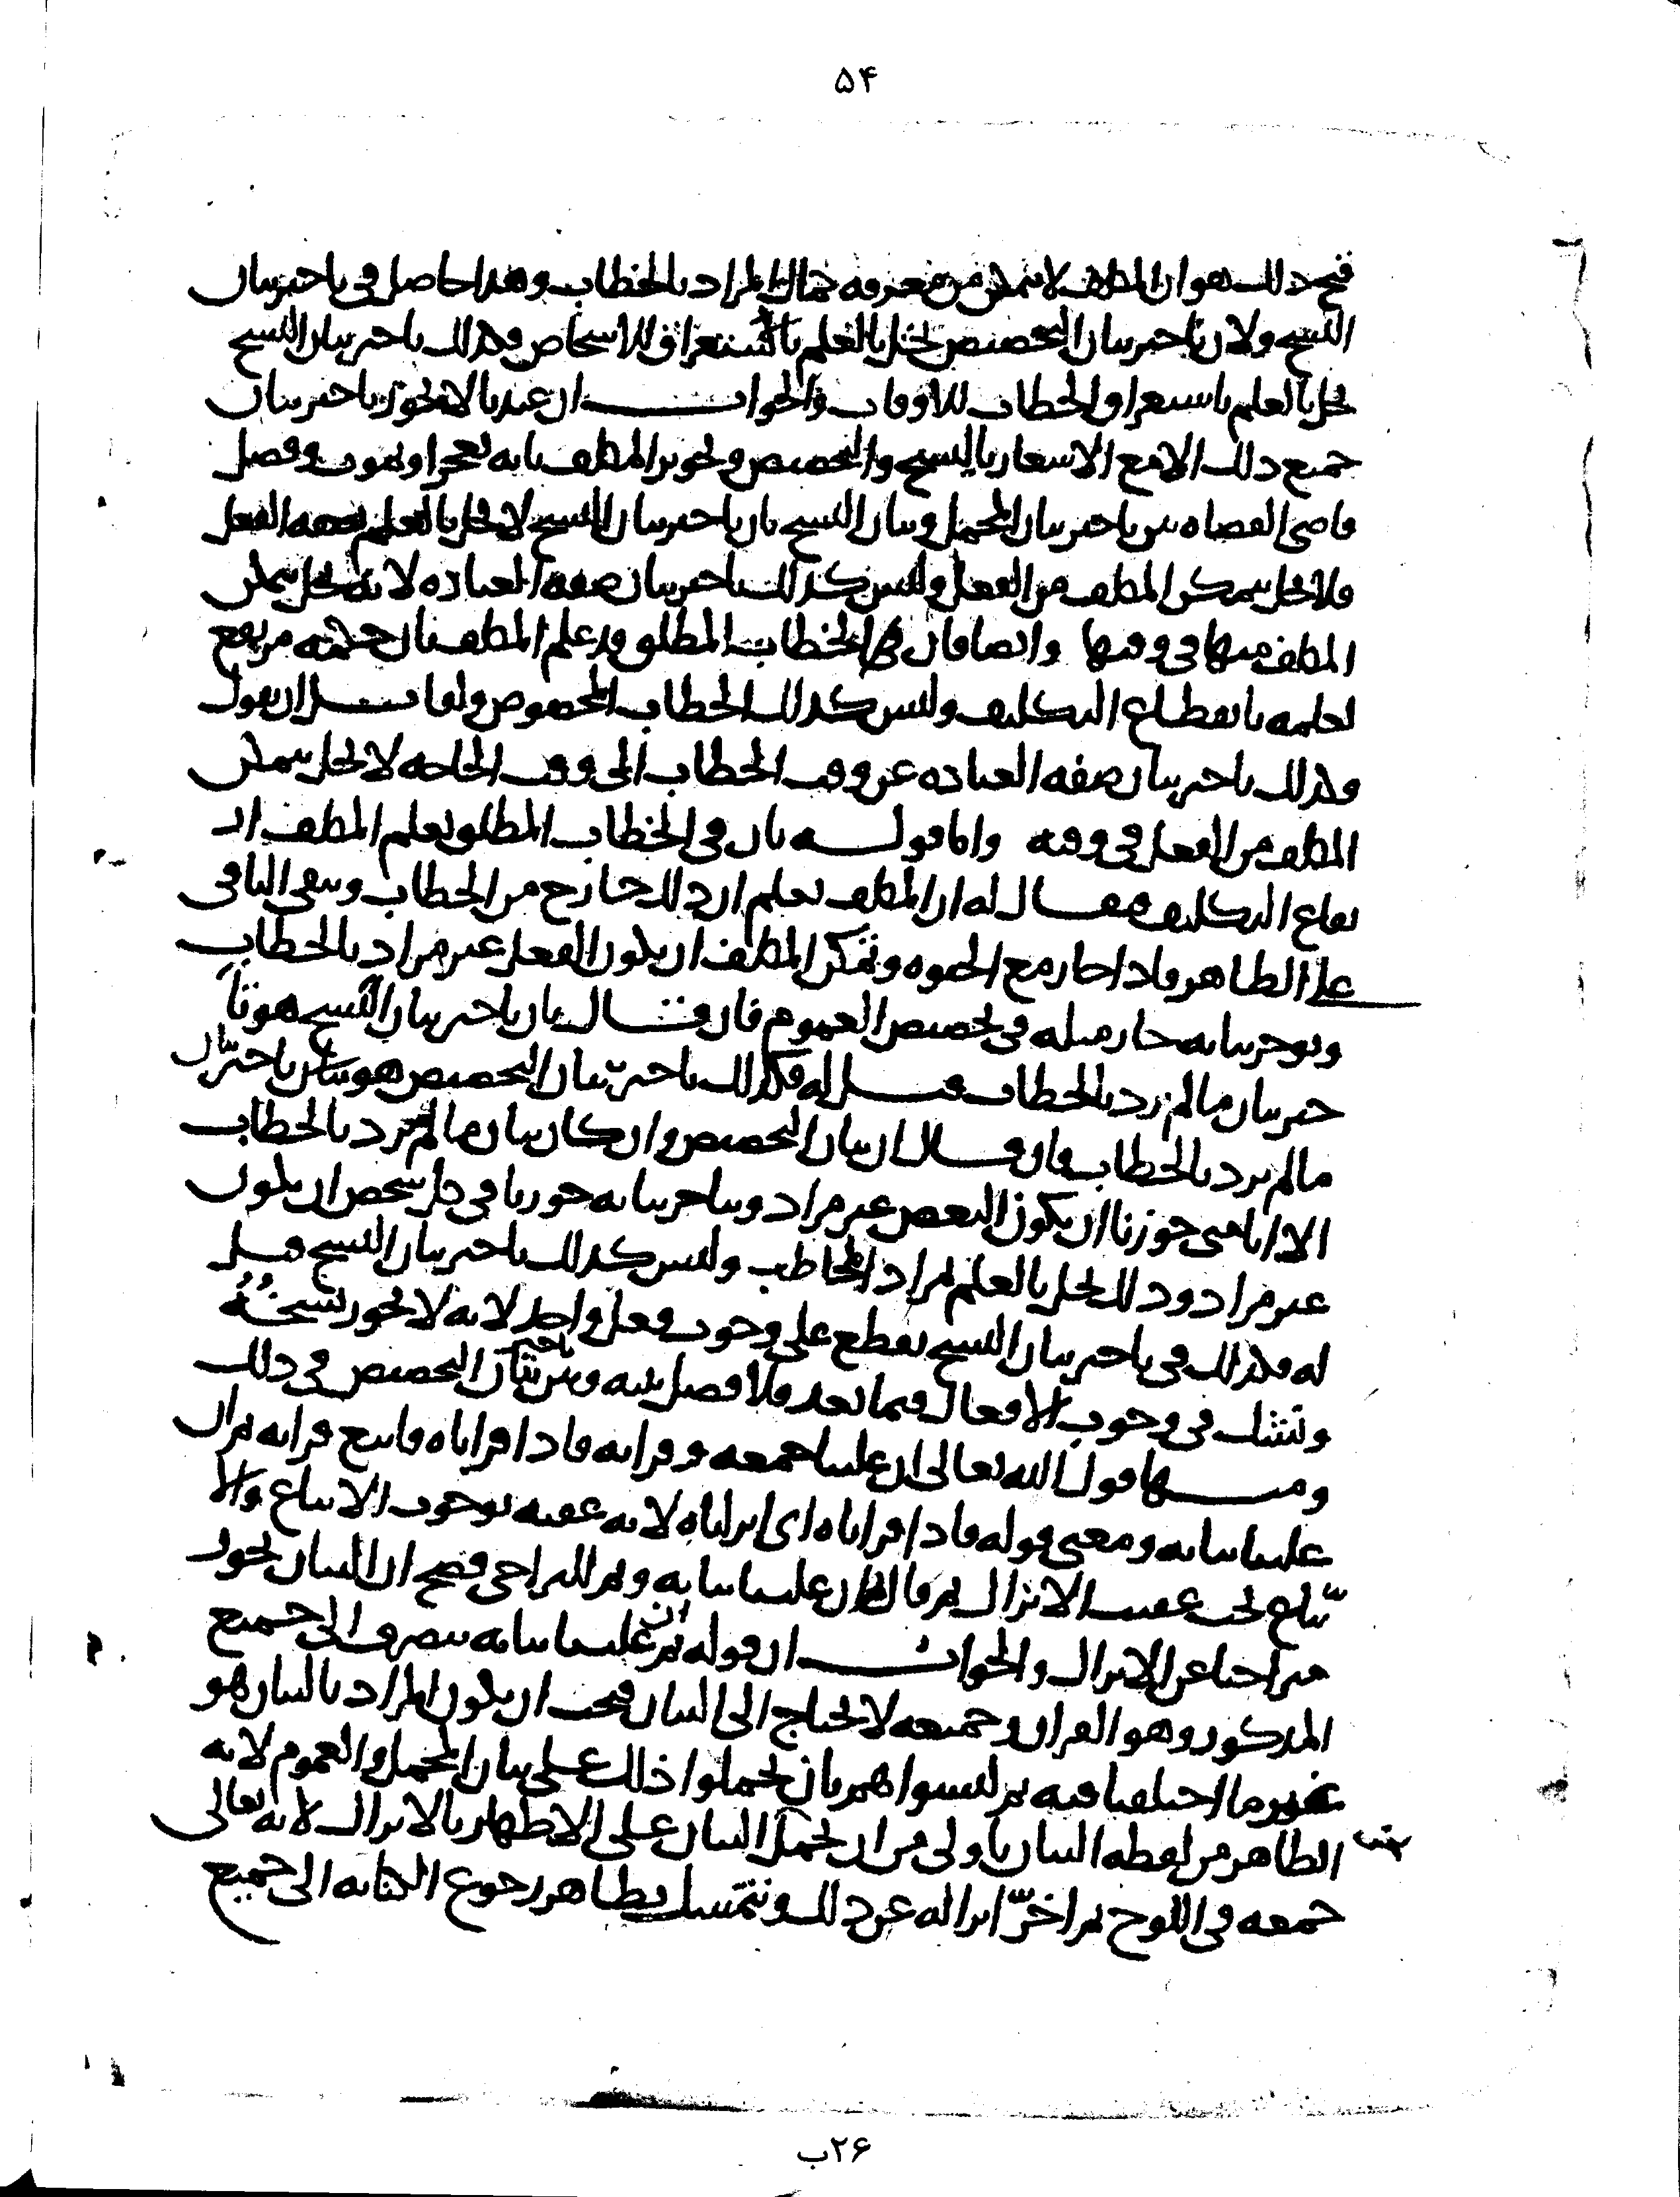 ۵۴
قبح ذلك هو ان المكلف لا يتمكن من معرفه كمال المراد بالخطاب وهذا حاصل في تاخير بيان
النسخ ولان تاخير بيان التخصيص يخل بالعلم باستغراق للاشخاص وكذلك تاخير بيان النسخ
يخل بالعلم باستغراق الخطاب للاوقات والجواب ان عندنا لا يجوز تاخير بيان
جميع ذلك الا مع الاشعار بالنسخ والتخصيص وتجويز المكلف بانه يعجز او يموت وفصل
قاضي القضاه بين تاخير بيان المجمل وبيان النسخ بان تاخير بيان النسخ لا يخل بالعلم بصفه الفعل
فلا يخل بتمكن المكلف من الفعل وليس كذلك تاخير بيان صفه العباده لانه يخل بتمكن
المكلف منها في وقتها وايضا فان في الخطاب المطلق قد علم المكلف بان حكمه مرتفع
لعلمه بانقطاع التكليف وليس كذلك الخطاب المخصوص ولقائل ان يقول
وكذلك تاخير بيان صفه العباده عن وقت الخطاب الى وقت الحاجه لا يخل بتمكن
المكلف من الفعل في وقته واما قوله بان في الخطاب المطلق يعلم المكلف ان
قطاع التكليف فيقال له ان المكلف يعلم ان ذلك خارج من الخطاب ويبقى الباقي
على الظاهر فاذا جاز مع الحيوه وتمكن المكلف ان يكون الفعل غير مراد بالخطاب
ويوخر بيانه جاز مثله في تخصيص العموم فان قال بان تاخير بيان النسخ هو تا
خير بيان ما لم يرد بالخطاب قيل له فكذلك تاخير بيان التخصيص هو تاخير بيان
ما لم يرد بالخطاب فان قال ان بيان التخصيص وان كان بيان ما لم يرد بالخطاب
الا انا متى جوزنا ان يكون البعض غير مراد وتاخر بيانه جوزنا في كل شخص ان يكون
غير مراد وذلك يخل بالعلم لمراد المخاطب وليس كذلك تاخير بيان النسخ قيل
له فكذلك في تاخير بيان النسخ نقطع على وجوب فعل واحد لانه لا يجوز نسخه
ونشك في وجوب الافعال فيما بعد فلا فصل بينه وبين تاخير بيان التخصيص في ذلك
ومنها قول الله تعالى ان علينا جمعه وقرانه فاذا قراناه فاتبع قرانه ثم ان
علينا بيانه ومعنى قوله فاذا قراناه اي انزلناه لانه عقبه بوجوب الاتباع والا
تباع يجب عقيب الانزال ثم قال ثم ان علينا بيانه وثم للتراخي فصح ان البيان يجوز
متراخيا عن الانزال والجواب ان قوله ثم ان علينا بيانه ينصرف الى جميع
المذكور وهو القران وجميعه لا يحتاج الى البيان فيجب ان يكون المراد بالبيان هو
غير ما اختلفنا فيه ثم ليسوا هم بان يحملوا ذلك على بيان المجمل والعموم لانه
الظاهر من لفظه البيان باولى من ان نحمل البيان على الاظهار بالانزال لانه تعالى
جمعه في اللوح ثم اخّر انزاله عن ذلك ونتمسك بظاهر رجوع الكنايه الى جميع
۲۶ب